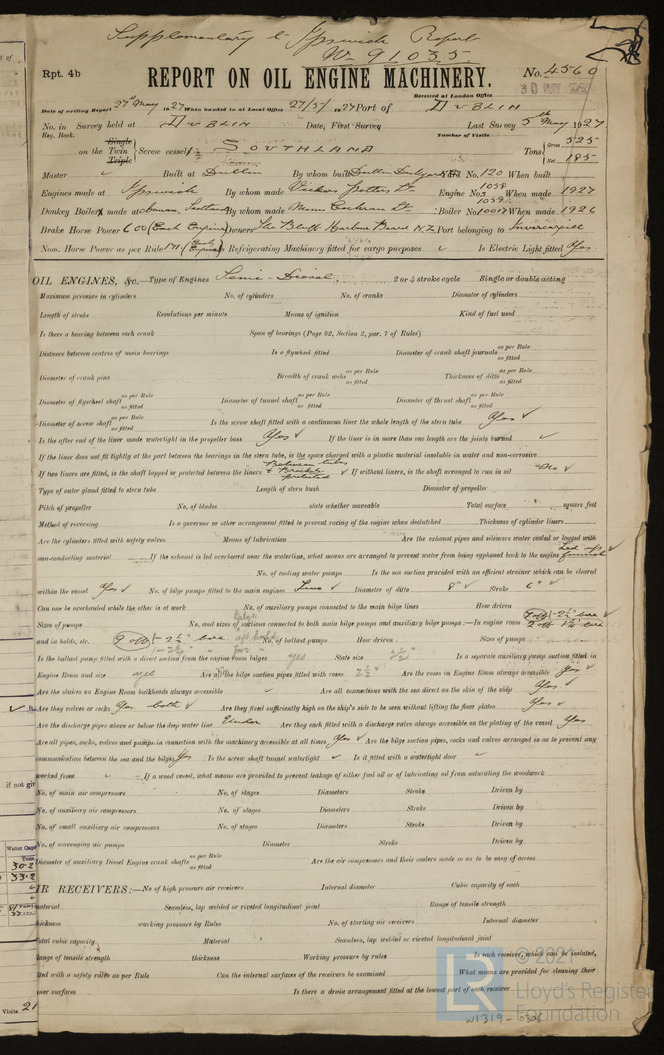 Supplementary to Ipswich Report
No. 91035.
Rpt. 4b
REPORT ON OIL ENGINE MACHINERY.
No. 4560
Received at London Office
Date of writing Report 27th May 1927 When handed in at Local Office 27/5/1927 Port of DUBLIN
No. in Survey held at DUBLIN Date, First Survey Last Survey 5th May 1927
Reg. Book. Number of Visits
on the Single Twin Triple Screw vessel SOUTHLAND Tons Gross 525 Net 185
Master Built at Dublin By whom built Dublin Dockyard Yard No. 120 When built
Engines made at Ipswich By whom made Vickers Petters Ld Engine Nos 1058 1059 When made 1927
Donkey Boilers made at Annan, Scotland By whom made Messrs Cochran Ld Boiler No. 10017 When made 1926
Brake Horse Power 600 (Each Engine) Owners The Bluff Harbour Board N.Z. Port belonging to Invercargill
Nom. Horse Power as per Rule 171 (Each Engine) Is Refrigerating Machinery fitted for cargo purposes Is Electric Light fitted Yes
OIL ENGINES, &c.—Type of Engines Semi-Diesel 2 or 4 stroke cycle Single or double acting
Maximum pressure in cylinders No. of cylinders No. of cranks Diameter of cylinders
Length of stroke Revolutions per minute Means of ignition Kind of fuel used
Is there a bearing between each crank Span of bearings (Page 92, Section 2, par. 7 of Rules)
Distance between centres of main bearings Is a flywheel fitted Diameter of crank shaft journals as per Rule as fitted
Diameter of crank pins Breadth of crank webs as per Rule as fitted Thickness of ditto as per Rule as fitted
Diameter of flywheel shaft as per Rule as fitted Diameter of tunnel shaft as per Rule as fitted Diameter of thrust shaft as per Rule as fitted
Diameter of screw shaft as per Rule as fitted Is the screw shaft fitted with a continuous liner the whole length of the stern tube Yes ✓
Is the after end of the liner made watertight in the propeller boss Yes ✓ If the liner is in more than one length are the joints burned ✓
If the liner does not fit tightly at the part between the bearings in the stern tube, is the space charged with a plastic material insoluble in water and non-corrosive
If two liners are fitted, is the shaft lapped or protected between the liners Between tube & Bracket protected ✓ If without liners, is the shaft arranged to run in oil No ✓
Type of outer gland fitted to stern tube Length of stern bush Diameter of propeller
Pitch of propeller No. of blades state whether moveable Total surface square feet
Method of reversing Is a governor or other arrangement fitted to prevent racing of the engine when declutched Thickness of cylinder liners
Are the cylinders fitted with safety valves Means of lubrication Are the exhaust pipes and silencers water cooled or lagged with
non-conducting material If the exhaust is led overboard near the waterline, what means are arranged to prevent water from being syphoned back to the engine Led up funnel ✓
No. of cooling water pumps Is the sea suction provided with an efficient strainer which can be cleared
within the vessel Yes ✓ No. of bilge pumps fitted to the main engines Two ✓ Diameter of ditto 8" ✓ Stroke 6" ✓
Can one be overhauled while the other is at work No. of auxiliary pumps connected to the main bilge lines How driven
Sizes of pumps No. and sizes of suctions connected to both main bilge pumps and auxiliary bilge pumps:—In engine room
and in holds, etc. No. of ballast pumps How driven Sizes of pumps
Is the ballast pump fitted with a direct suction from the engine room bilges yes State size 2½" Is a separate auxiliary pump suction fitted in
Engine Room and size yes Are all the bilge suction pipes fitted with roses 2½" Are the roses in Engine Room always accessible Yes ✓
Are the sluices on Engine Room bulkheads always accessible ✓ Are all connections with the sea direct on the skin of the ship Yes ✓
Are they valves or cocks Yes both ✓ Are they fixed sufficiently high on the ship's side to be seen without lifting the floor plates Yes ✓
Are the discharge pipes above or below the deep water line Under Are they each fitted with a discharge valve always accessible on the plating of the vessel Yes
Are all pipes, cocks, valves and pumps in connection with the machinery accessible at all times Yes ✓ Are the bilge suction pipes, cocks and valves arranged so as to prevent any
communication between the sea and the bilges Yes Is the screw shaft tunnel watertight ✓ Is it fitted with a watertight door ✓
worked from ✓ If a wood vessel, what means are provided to prevent leakage of either fuel oil or of lubricating oil from saturating the woodwork
No. of main air compressors No. of stages Diameters Stroke Driven by
No. of auxiliary air compressors No. of stages Diameters Stroke Driven by
No. of small auxiliary air compressors No. of stages Diameters Stroke Driven by
No. of scavenging air pumps Diameter Stroke Driven by
Diameter of auxiliary Diesel Engine crank shafts as per Rule as fitted Are the air compressors and their coolers made so as to be easy of access
IR RECEIVERS:—No of high pressure air receivers Internal diameter Cubic capacity of each
material Seamless, lap welded or riveted longitudinal joint Range of tensile strength
hickness working pressure by Rules No. of starting air receivers Internal diameter
otal cubic capacity Material Seamless, lap welded or riveted longitudinal joint
ange of tensile strength thickness Working pressure by rules Is each receiver, which can be isolated,
ted with a safety valve as per Rule Can the internal surfaces of the receivers be examined What means are provided for cleaning their
ner surfaces Is there a drain arrangement fitted at the lowest part of each receiver
if not gi
Water Cap
Tons
30.2
33.2
Visits 21
© 2021
LR
Lloyd's Register
Foundation
W1319-0306